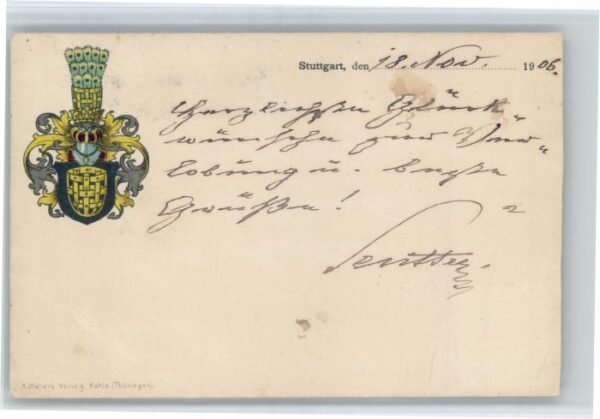 Stuttgart, den 18. Nov. 1906.
Herzlichste Glück-
wünsche zur Ver-
lobung u. beste
Grüße!
Seutter.
A. Wallers Verlag, Kahla (Thüringen).